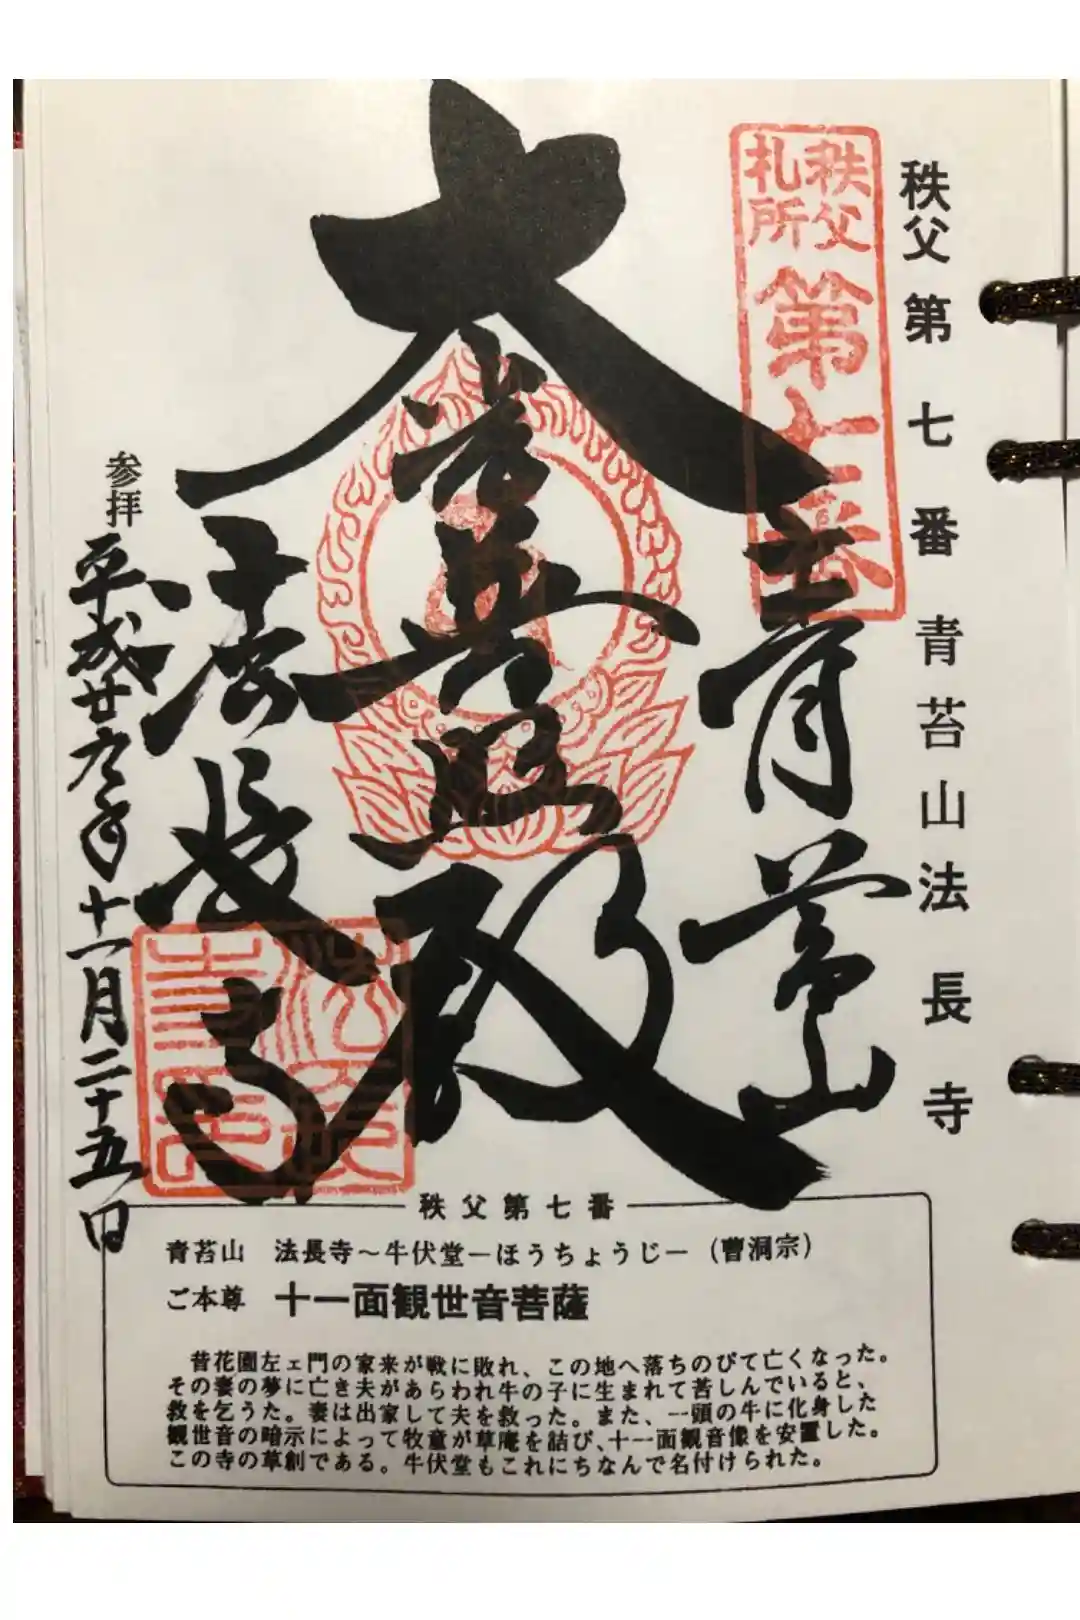 秩父第七番 青苔山法長寺
秩父
札所
第七番
青苔山
大光普照殿
法長寺
参拝 平成廿九年十一月二十五日
秩父第七番
青苔山 法長寺~牛伏堂ーほうちょうじー(曹洞宗)
ご本尊 十一面観世音菩薩
昔花園左ェ門の家来が戦に敗れ、この地へ落ちのびて亡くなった。
その妻の夢に亡き夫があらわれ牛の子に生まれて苦しんでいると、
救を乞うた。妻は出家して夫を救った。また、一頭の牛に化身した
観世音の暗示によって牧童が草庵を詰び、十一面観音像を安置した。
この寺の草創である。牛伏堂もこれにちなんで名付けられた。